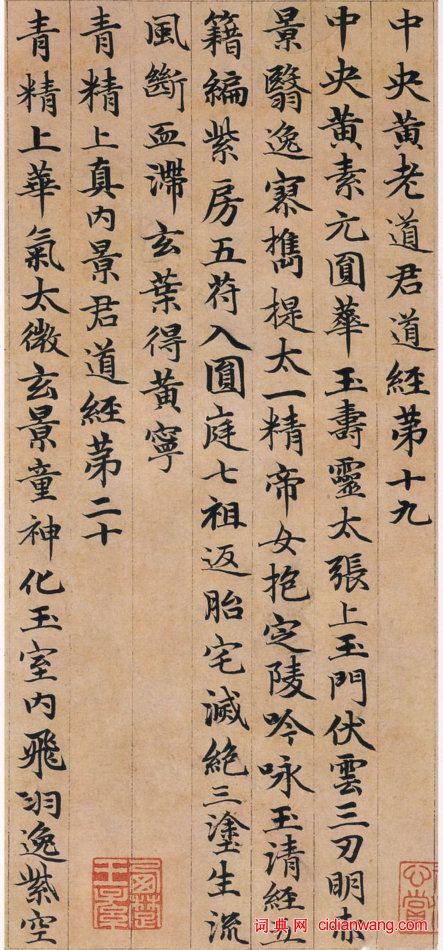 中央黄老道君道經第十九
中央黄素元圓華玉壽靈太張上玉門伏雲三刃明赤
景翳逸寥擕提太一精帝女抱定陵吟咏玉清經五
籍編紫房五苻入圓庭七祖返胎宅滅絶三塗生流
風斷血滯玄葉得黄寧
青精上真内景君道經第二十
青精上華氣太微玄景童神化玉室内飛羽逸紫空
词典网 cidianwang.com